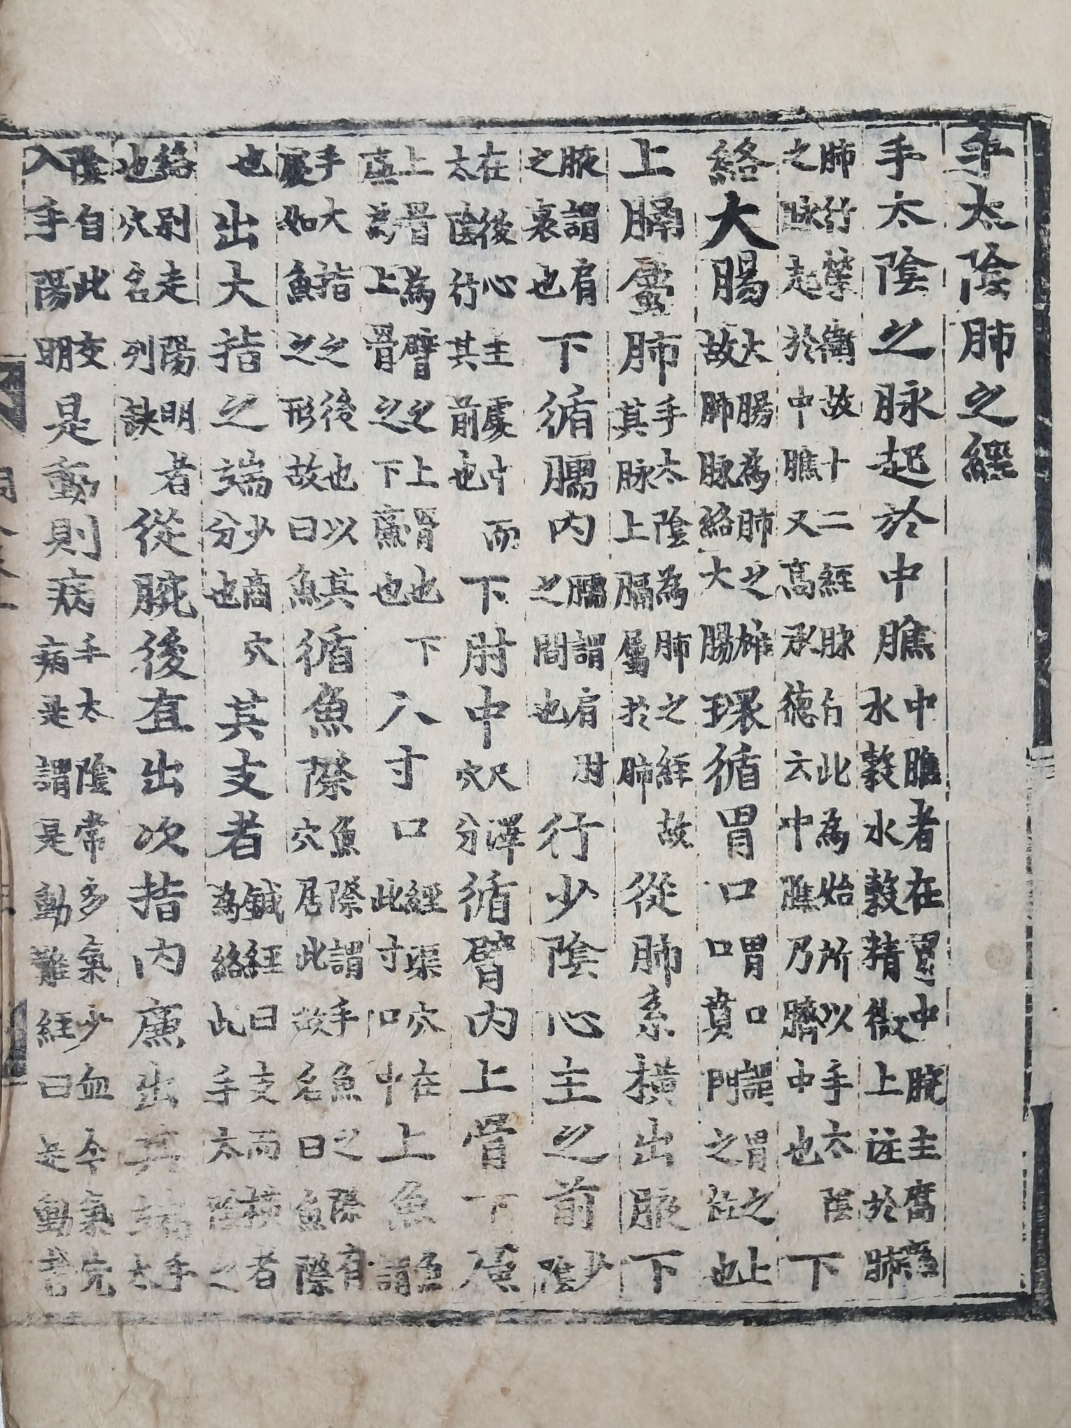 手太陰肺之經
手太陰之脉起於中膲中膲者在胃中脘主腐熟水穀水穀精微上注於肺
肺行榮衛故十二經脉行此為始所以手太陰之脉起於中膲又髙承德云中膲乃臍中也下
絡大腸大腸為肺之雄故肺脉絡大腸環循胃口胃口謂胃之上口賁門之位也
上膈屬肺手太陰為肺之經故其脉上膈屬於肺從肺系横出腋下
腋謂肩之裏也下循臑内臑謂肩肘之間也行少陰心主之前少陰
在後心主處中而太陰行其前也下肘中尺澤穴分循臂内上骨下廉
上骨為臂之上骨也下廉為上骨之下廉也下入寸口經渠穴在此寸口中上魚謂魚
手大指之後也以其處如魚之形故曰魚循魚際魚際謂手魚之際有穴居此故名曰魚際
也出大指之端少商穴分也其支者鍼經曰支而横者為絡此手太陰之
絡别走陽明者也穴名列缺從腕後直出次指内廉出其端手太
陰自此交入手陽明是動則病手太陰常多氣少血今氣先病是謂是動難經曰是動者